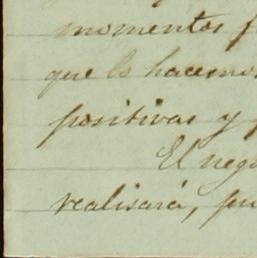 momentos
que lo hacemos
positivas y
El nego
realisará, pu